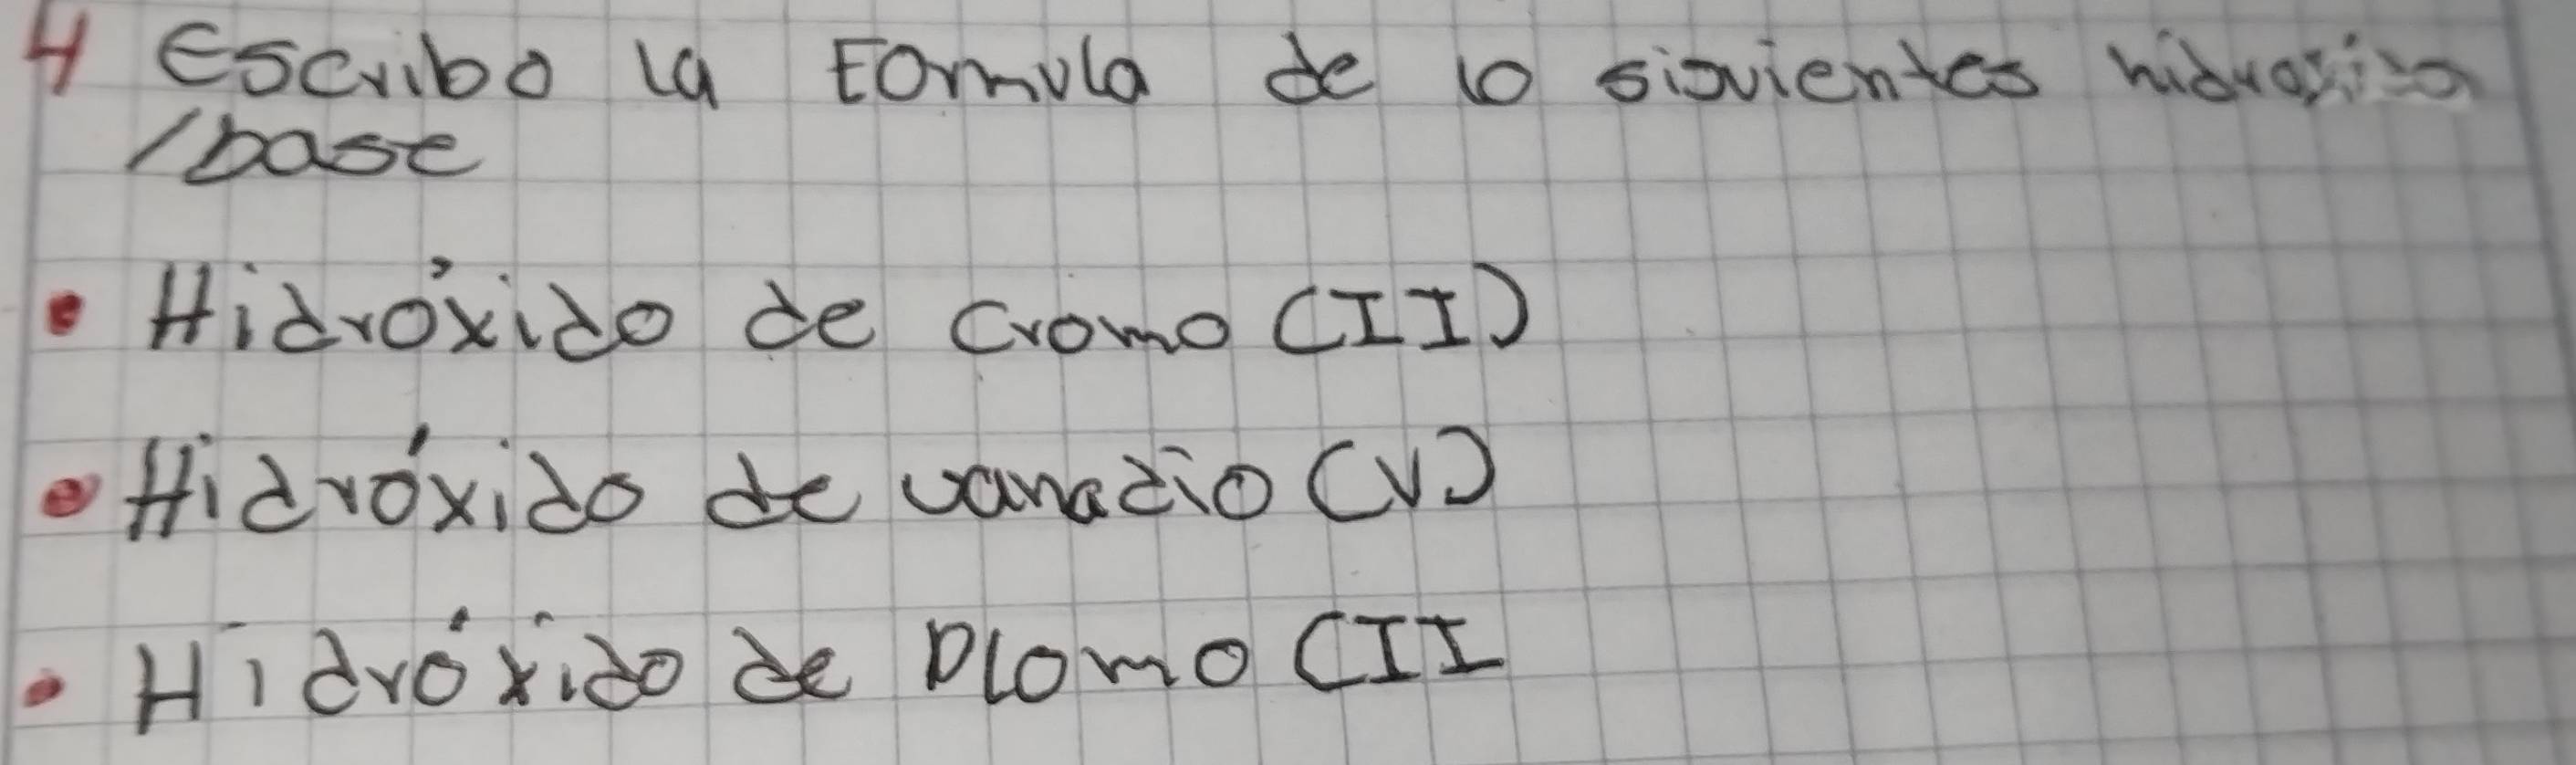 4 Escribo la Formula de lo siguientes hidroxido
/base
• Hidróxido de cromo (II)
• Hidróxido de vanadio (V)
• Hidróxido de Plomo (II